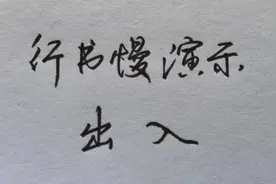 行书慢演示
出入